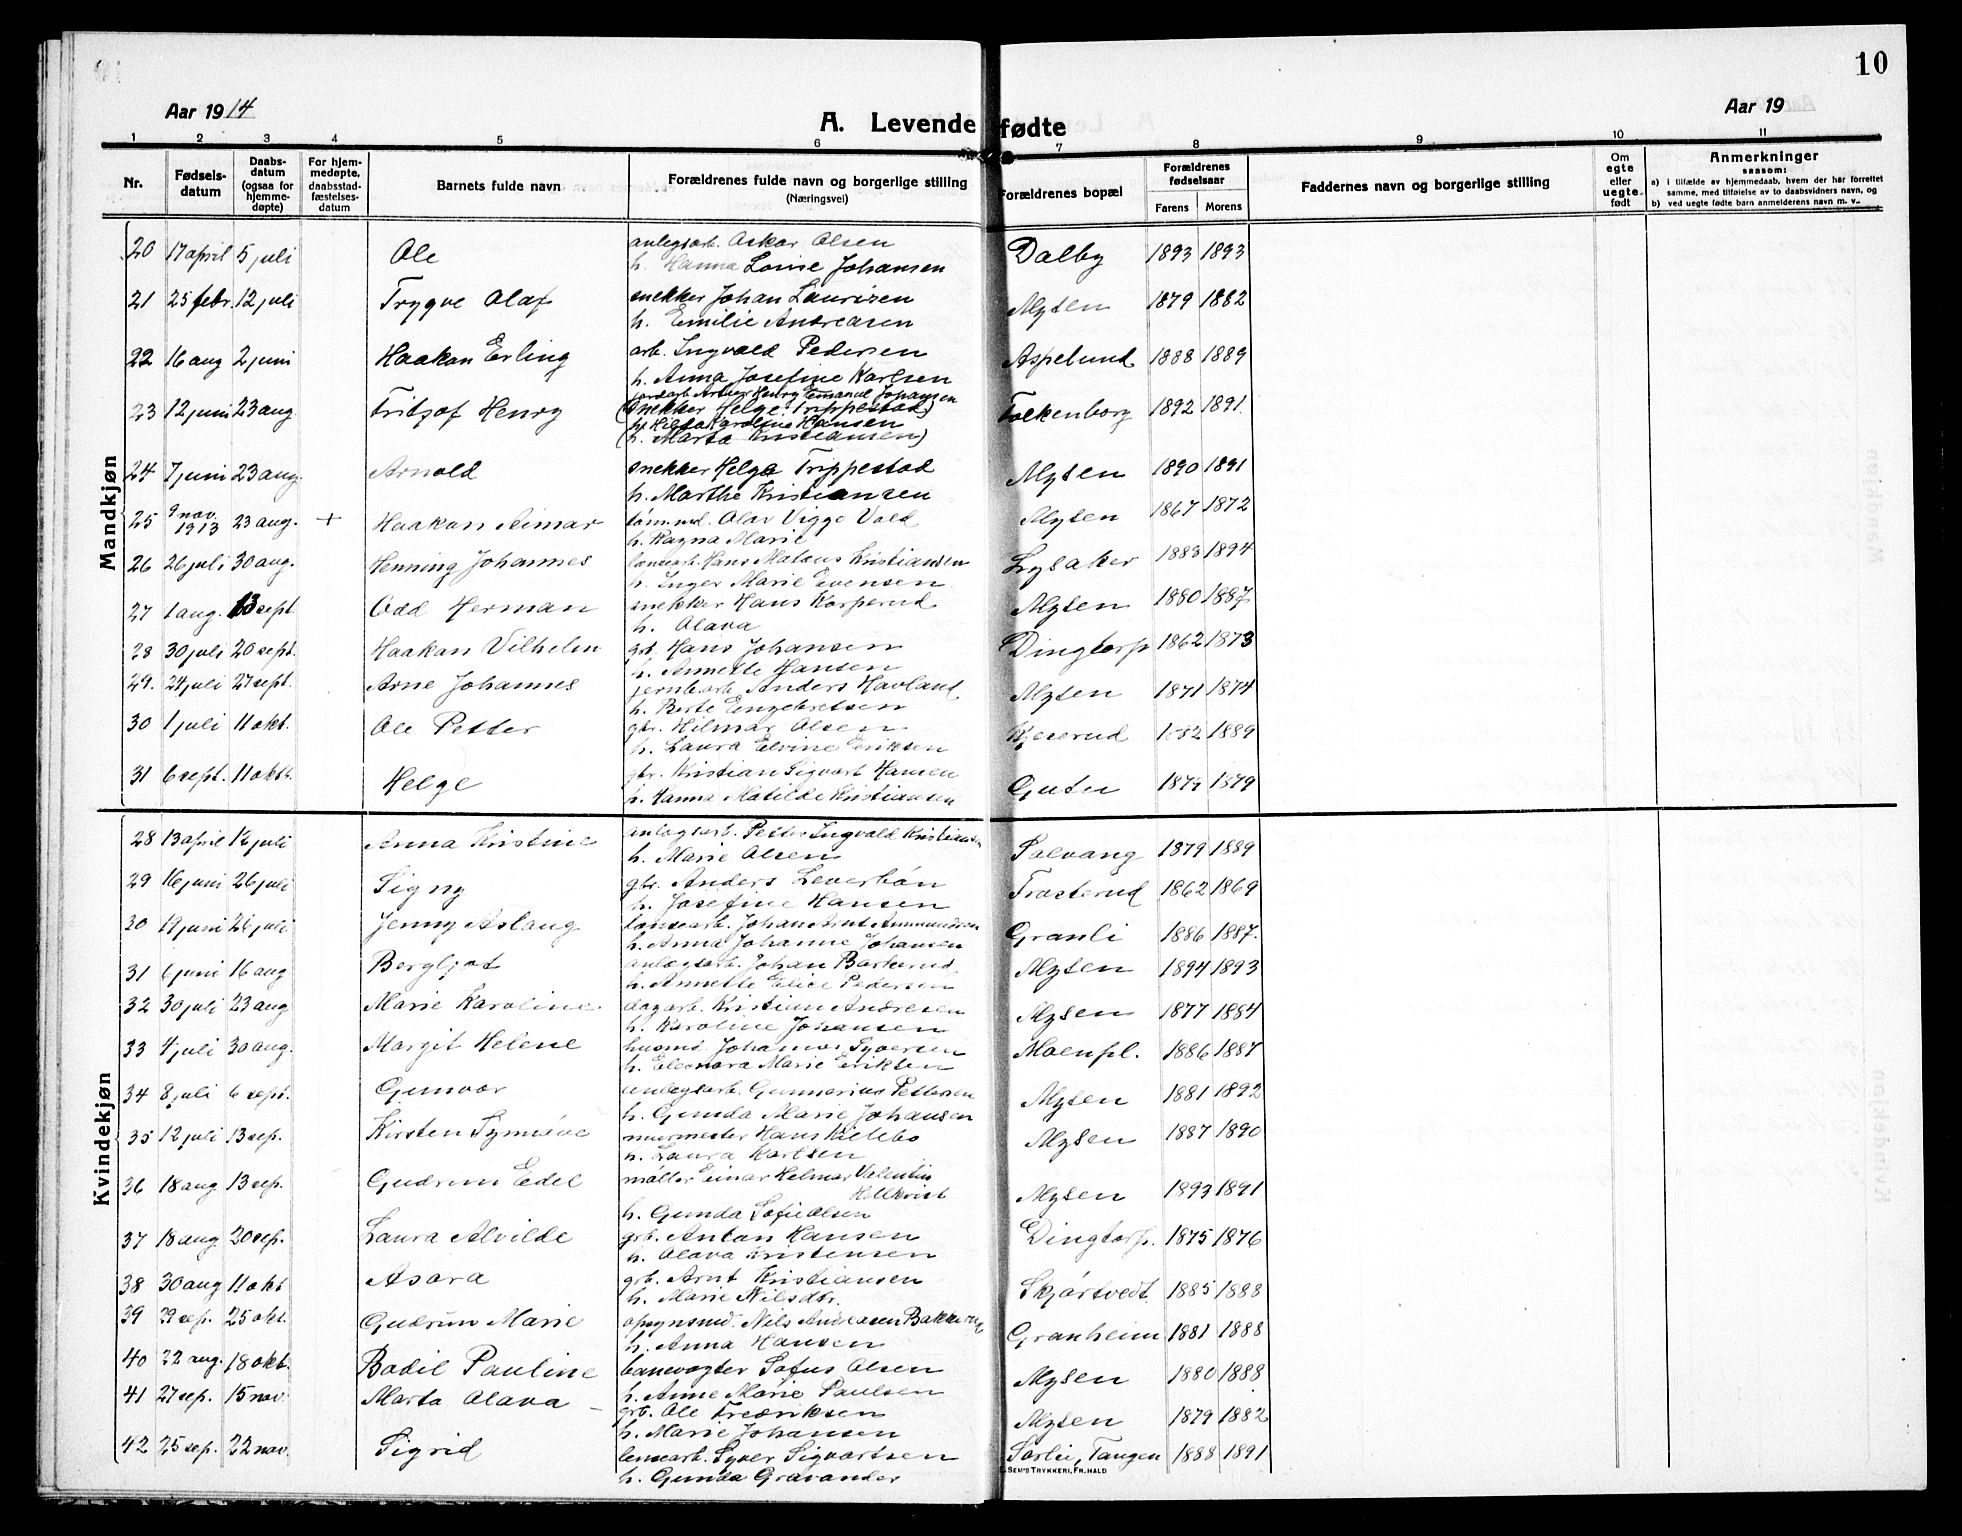 10
Aar 1914
A. Levende fødte
Aar 19
1 2 3 4 5 6 7 8 9 10 11
Nr.
Fødselsdatum
Daabsdatum (ogsaa for hjemmedøpte)
For hjemmedøpte, daabsstadfæstelsesdatum
Barnets fulde navn
Forældrenes fulde navn og borgerlige stilling (Næringsvei)
Forældrenes bopæl
Forældrenes fødselsaar
Farens Morens
Faddernes navn og borgerlige stilling
Om egte eller uegte født
Anmerkninger
saasom:
a) i tilfælde av hjemmedaab, hvem der har forrettet samme, med tilføielse av to daabsvidners navn, og
b) ved uegte fødte barn anmelderens navn m. v.
Mandkjøn
20 17 april 5 juli Ole anlegsarb. Oskar Olsen Dalby 1893 1893
h. Hanna Lovise Johansen
21 25 febr. 12 juli Trygve Olaf snekker Johan Laurizen Mysen 1879 1882
h. Emilie Andreasen
22 16 aug 2 juni Haakon Erling arb. Ingvald Pedersen Aspelund 1888 1889
h. Anna Josefine Karlsen
jordarb. Artur Henry Emanuel Johansen
23 12 juni 23 aug Fritjof Henry (snekker Helge Trippestad) Folkenborg 1892 1891
h. Hilda Karoline Hansen
(h. Marta Kristiansen)
24 7 juni 23 aug. Arnold snekker Helge Trippestad Mysen 1890 1891
h. Marthe Kristiansen
25 9 nov. 1913 23 aug. + Haakon Aimar tømmd. Olav Vigge Vold Mysen 1867 1872
h. Ragna Marie
26 26 juli 30 aug. Henning Johannes Hans Mataus Kristiansen Lysaker 1883 1894
h. Inger Marie Evensen
27 1 aug. 13 sept Odd Herman snekker Hans Korperud Mysen 1880 1887
h. Olava
28 30 juli 20 sept. Haakon Vilhelm grb. Hans Johansen Dingtorp 1862 1873
h. Annette Hansen
29. 24 juli 27 sept. Arne Johannes jernbarb. Anders Havland Mysen 1871 1874
h. Berte Engebretsen
30 1 juli 11 okt. Ole Petter gbr. Hilmar Olsen 1882 1889
h. Laura Elvine Eriksen
31 6 sept. 11 okt. Helge gbr. Kristian Sigvart Hansen Gutu 1879
h. Hanna Matilde Kristiansen
Kvindekjøn
28 13 april 12 juli Anna Kristine anlegsarb. Petter Ingvald Kristiansen Solvang 1879 1889
h. Marie Olsen
29 16 juni 26 juli Signy gbr. Anders Leverbøn Trosterud 1862 1869
h. Josefine Hansen
30 19 juni 26 juli Jenny Aslaug Johan Arnt Ammundsen Granli 1886 1887
h. Anna Johanne Johansen
31 6 juni 16 aug Bergljot anlegsarb. Johan Barkerud Mysen 1894 1893
h. Annette Elise Pedersen
32 30 juli 23 aug Marie Karoline dagarb. Kristian Andresen Mysen 1877 1884
h. Karoline Johansen
33 4 juli 30 aug. Margit Helene husmd. Johannes Syversen Moenpl. 1886 1887
h. Eleonora Marie Eriksen
34 8 juli 6 sept. Gunvor anlegsarb. Gunnerius Pettersen Mysen 1881 1892
h. Gunda Marie Johansen
35 12 juli 13 sep. Kirsten Synnøve murmester Hans Kielebo Mysen 1887 1890
h. Laura Karlsen
36 18 aug 13 sep. Gudrun Edel møller Einar Helmar Valentin Mysen 1893 1891
Hellkvist
h. Gunda Sofie Olsen
37 18 aug 20 sep. Laura Alvilde grb. Anton Hansen Dingtorp. 1875 1876
h. Olava Kristensen
38 30 aug 11 okt Asora grb. Arnt Kristiansen Skjørtvedt 1885 1888
h. Marie Nilsdtr.
39 29 sep. 25 okt. Gudrun Marie opsynsmd. Nils Andreasen Bakkerud Granheim 1881 1888
h. Anna Hansen
40 22 aug. 18 okt. Bodil Pauline banevogter Sofus Olsen Mysen 1880 1888
h. Anne Marie Paulsen
41 27 sep. 15 nov. Marta Olava grb. Ole Fredriksen Mysen 1879 1882
h. Marie Johansen
42 25 sep. 22 nov. Sigrid lensearb. Syver Sigvartsen Sorli, Tangen 1888 1891
h. Gunda Gravander
SEN'S TRYKKERI, FR.HALD